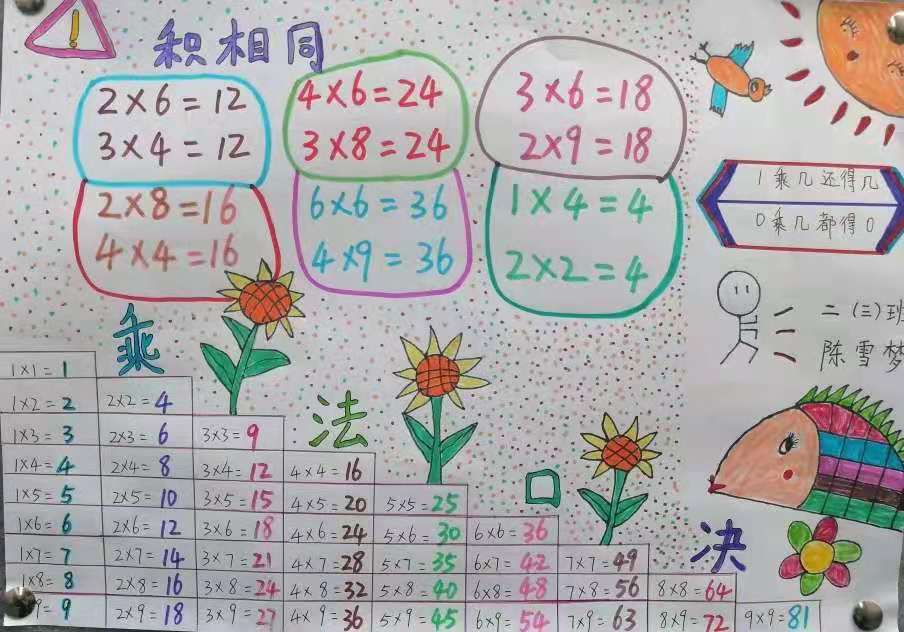 积相同
2×6=12
3×4=12
4×6=24
3×8=24
3×6=18
2×9=18
2×8=16
4×4=16
6×6=36
4×9=36
1×4=4
2×2=4
1乘几还得几
0乘几都得0
二(三)班
陈雪梦
乘法口决
1×1=1
1×2=2 2×2=4
1×3=3 2×3=6 3×3=9
1×4=4 2×4=8 3×4=12 4×4=16
1×5=5 2×5=10 3×5=15 4×5=20 5×5=25
1×6=6 2×6=12 3×6=18 4×6=24 5×6=30 6×6=36
1×7=7 2×7=14 3×7=21 4×7=28 5×7=35 6×7=42 7×7=49
1×8=8 2×8=16 3×8=24 4×8=32 5×8=40 6×8=48 7×8=56 8×8=64
9=9 2×9=18 3×9=27 4×9=36 5×9=45 6×9=54 7×9=63 8×9=72 9×9=81